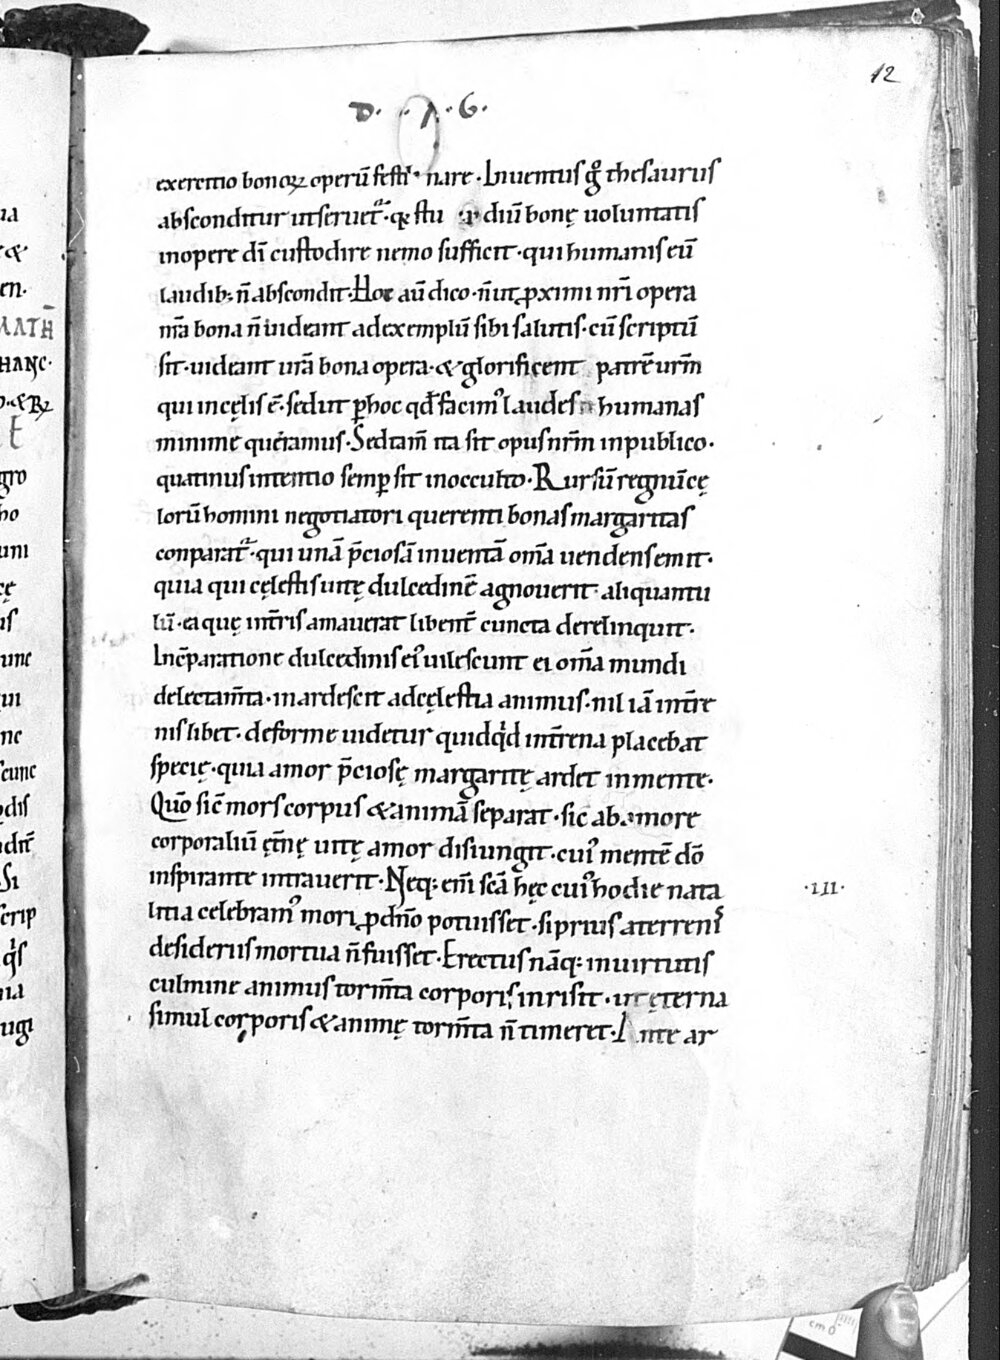 12
D. . A . G.
exercitio bonoꝝ operū festi nare . Inuentus g̊ thesaurus
absconditur ut seruet᷑ . qꝛ stu diū bonę uoluntatis
in opere dī custodire nemo sufficit . qui humanis eū
laudib; n̄ abscondit . Hoc aū dico . n̄ ut ꝓximi nr̄i opera
nr̄a bona n̄ uideant ad exemplū sibi salutis . cū scriptū
sit . uideant ur̄a bona opera . & glorificent patrē urm̄
qui in cęlis ē . sed ut ꝑ hoc qđ facim᾿ laudes humanas
minime queramus . Sed tam̄ ita sit opus nr̄m in publico .
quatinus intentio semꝑ sit in occulto . Rursū regnū cę
lorū homini negotiatori querenti bonas margaritas
conparat᷑ . qui unā p̄ciosā inuentā om̄a uendens emit .
quia qui cęlestis uitę dulcedinē agnouerit . aliquantu
lū . ea quę int̄ris amauerat libent̄ cuncta derelinquit .
In cp̄aratione dulcedinis ei᾿ uilescunt ei om̄a mundi
delectam̄ta . inardescit ad cęlestia animus . nil iā int̄re
nis libet . deforme uidetur quidq̇d int̄rena placebat
specię . quia amor p̄ciosę margaritę ardet in mente .
Quō sic̄ mors corpus & animā separat . sic ab amore
corporaliū ęt̄nę uitę amor disiungit . cui᾿ mentē dō
inspirante intrauerit . Neq; em̄ scā hęc cui᾿ hodie nata
·III·
litia celebram᾿ mori ꝓ dn̄o potuisset . si prius a terrenis
desideriis mortua n̄ fuisset . Erectus nāq; in uirtutis
culmine animus torm̄ta corporis inrisit . ut ęterna
simul corporis & animę torm̄ta n̄ timeret . Ante ar
cm 0